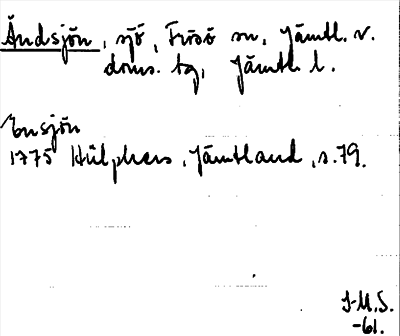 Ändsjön, sjö, Frösö sn, Jämtl. v.
doms. tg, Jämtl. l.
Ensjön
1775 Hülphers, Jämtland, s. 79.
J-M.S.
-61.